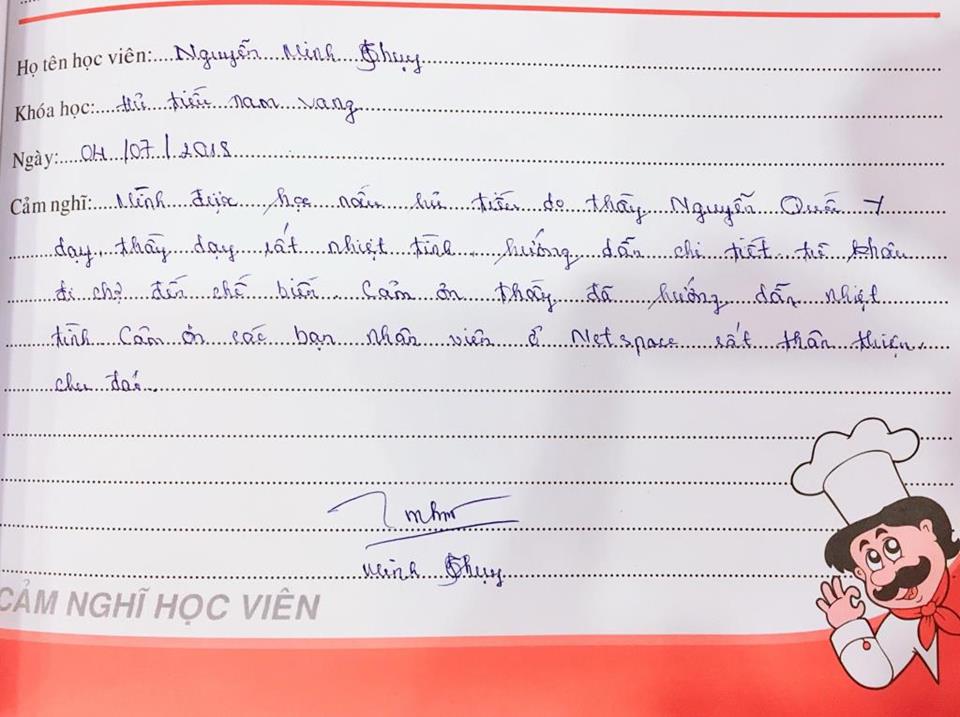 Họ tên học viên: Nguyễn Minh Thụy
Khóa học: Hủ tiếu nam vang
Ngày: 04/07/2018
Cảm nghĩ: Mình được học nấu hủ tiếu do thầy Nguyễn Quốc Y
dạy, thầy dạy rất nhiệt tình, hướng dẫn chi tiết từ khâu
đi chợ đến chế biến. Cảm ơn thầy đã hướng dẫn nhiệt
tình. Cảm ơn các bạn nhân viên ở Netspace rất thân thiện,
chu đáo.
Minh Thụy
CẢM NGHĨ HỌC VIÊN